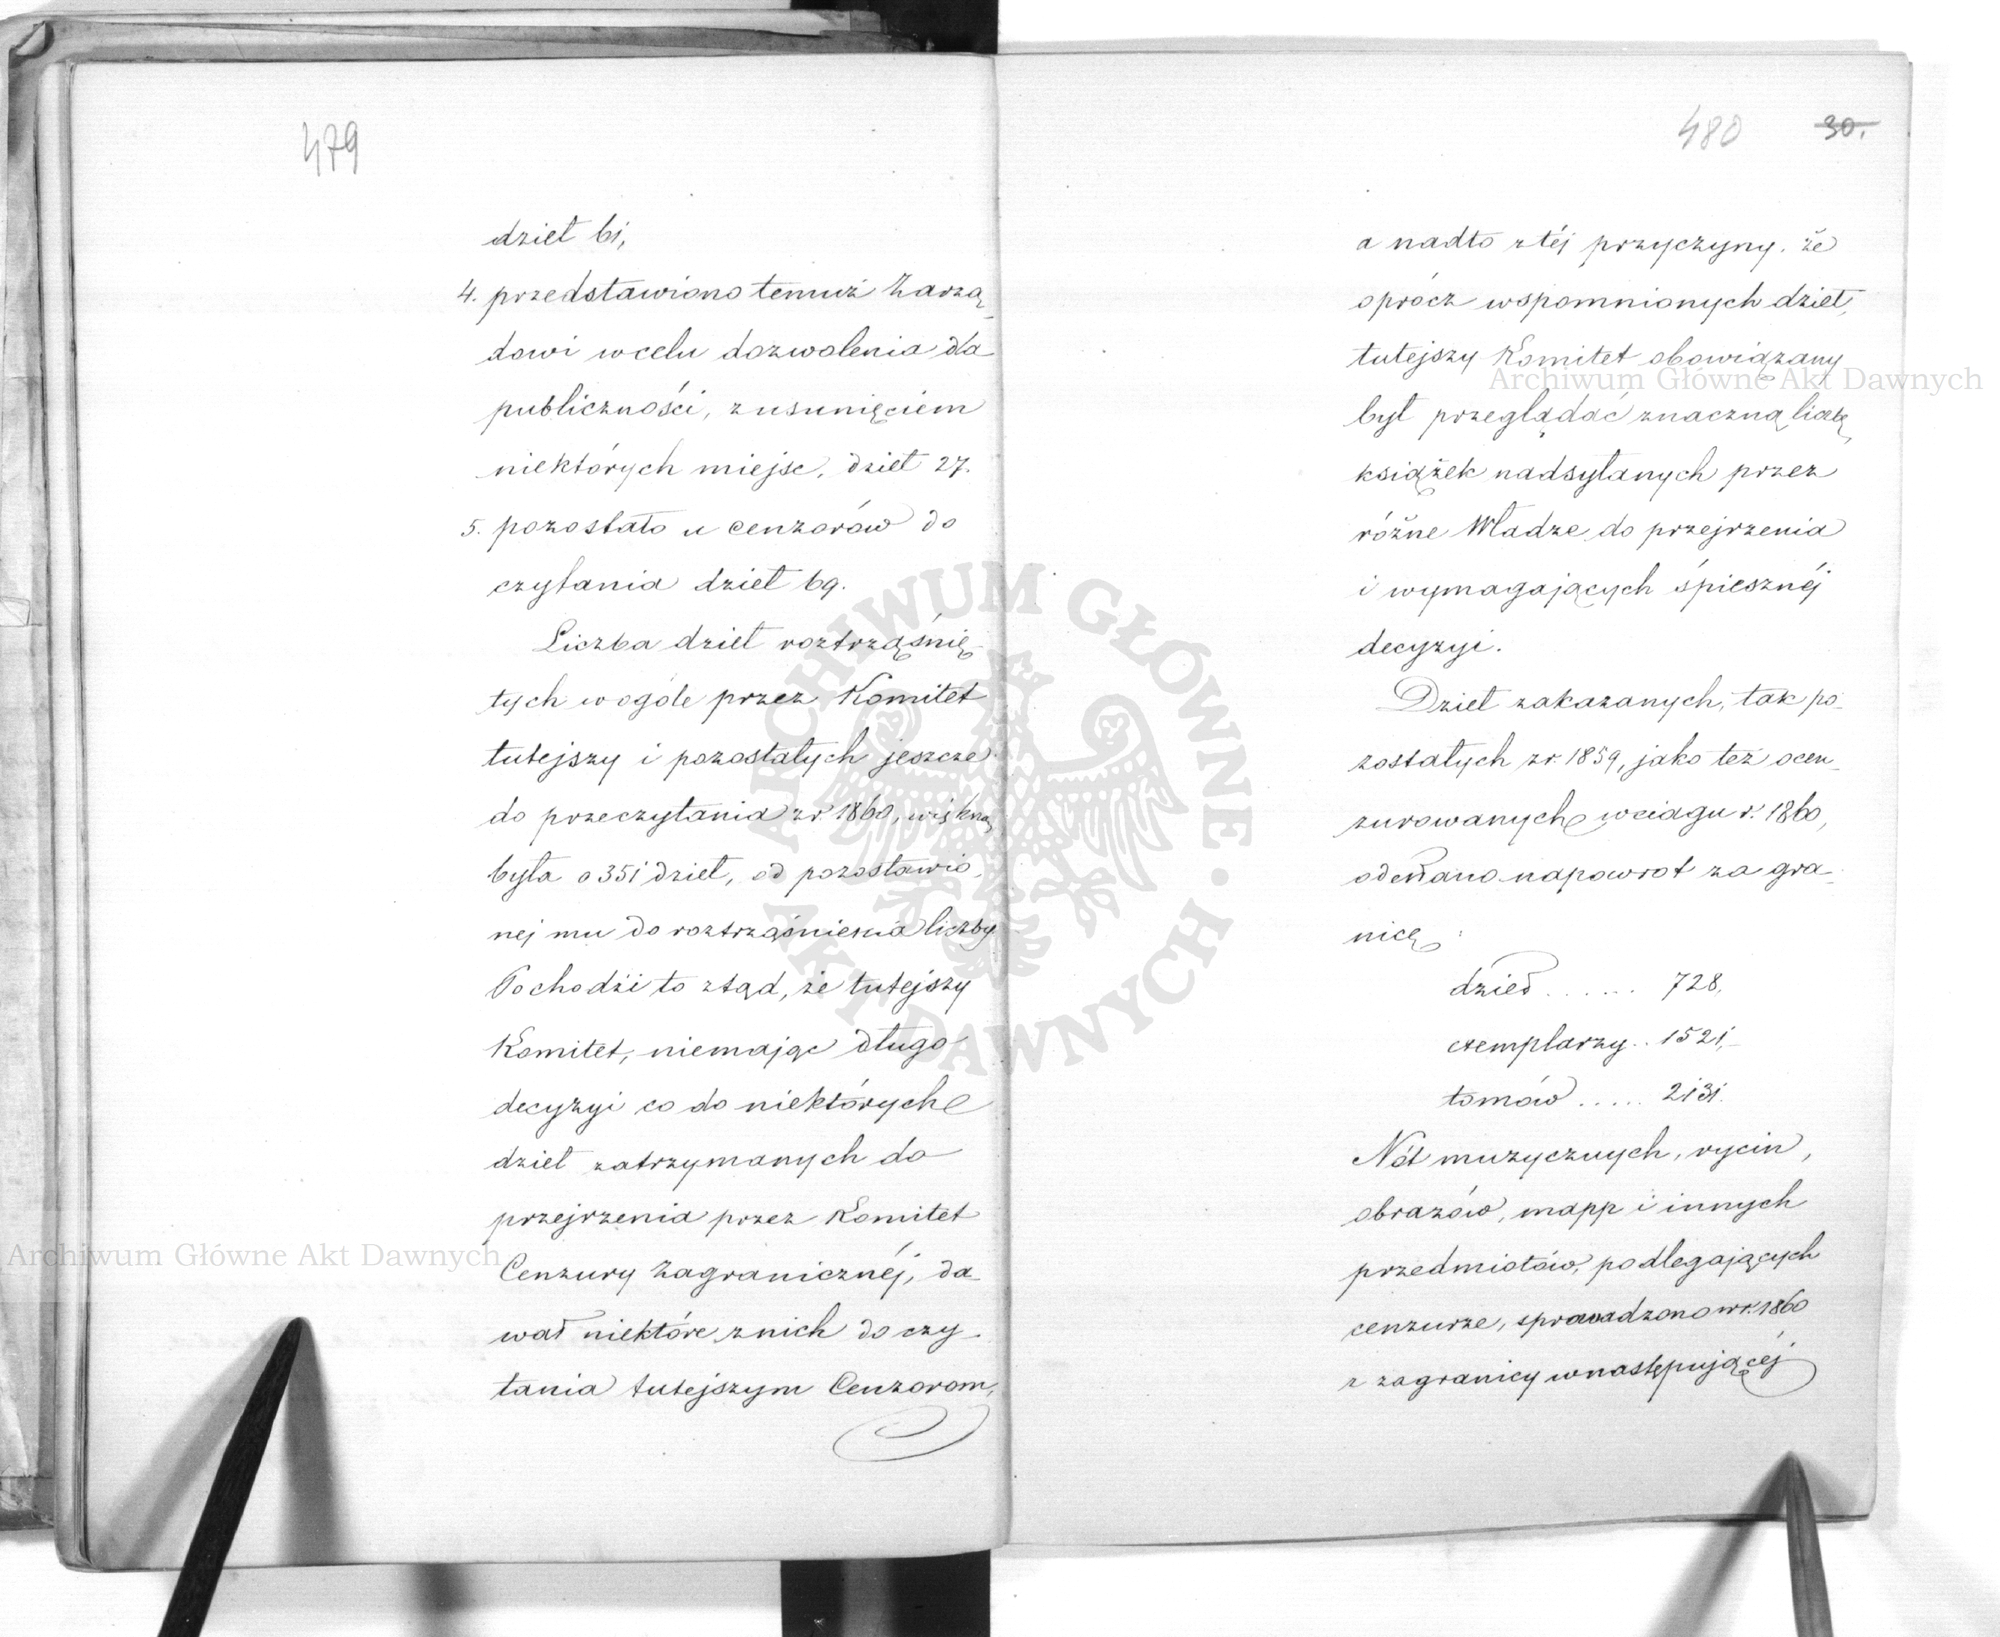 479
dzieł 61,
4. przedstawiono temuż Zarzą-
dowi w celu dozwolenia dla
publiczności, z usunięciem
niektórych miejsc, dzieł 27.
5. pozostało u cenzorów do
czytania dzieł 69.
Liczba dzieł roztrząśnię-
tych w ogóle przez Komitet
tutejszy i pozostałych jeszcze
do przeczytania z r. 1860, większą
była o 351 dzieł, od pozostawio-
nej mu do roztrząśnienia liczby.
Pochodzi to ztąd, że tutejszy
Komitet, niemając długo
decyzyi co do niektórych
dzieł zatrzymanych do
przejrzenia przez Komitet
Cenzury Zagranicznéj, da-
wał niektóre z nich do czy-
tania tutejszym Cenzorom,
480 30.
a nadto z téj przyczyny, że
oprócz wspomnionych dzieł,
tutejszy Komitet obowiązany
był przeglądać znaczną liczbę
książek nadsyłanych przez
różne Władze do przejrzenia
i wymagających śpiesznéj
decyzyi.
Dzieł zakazanych, tak po-
zostałych z r. 1859, jako też ocen-
zurowanych w ciągu r. 1860,
odesłano napowrot za gra-
nicę:
dzieł ...... 728,
exemplarzy .. 1521,
tomów ..... 2131.
Nót muzycznych, rycin,
obrazów, mapp i innych
przedmiotów, podlegających
cenzurze, sprowadzono w r. 1860
z zagranicy w następującéj
Archiwum Główne Akt Dawnych
Archiwum Główne Akt Dawnych
· ARCHIWUM GŁÓWNE · AKT DAWNYCH